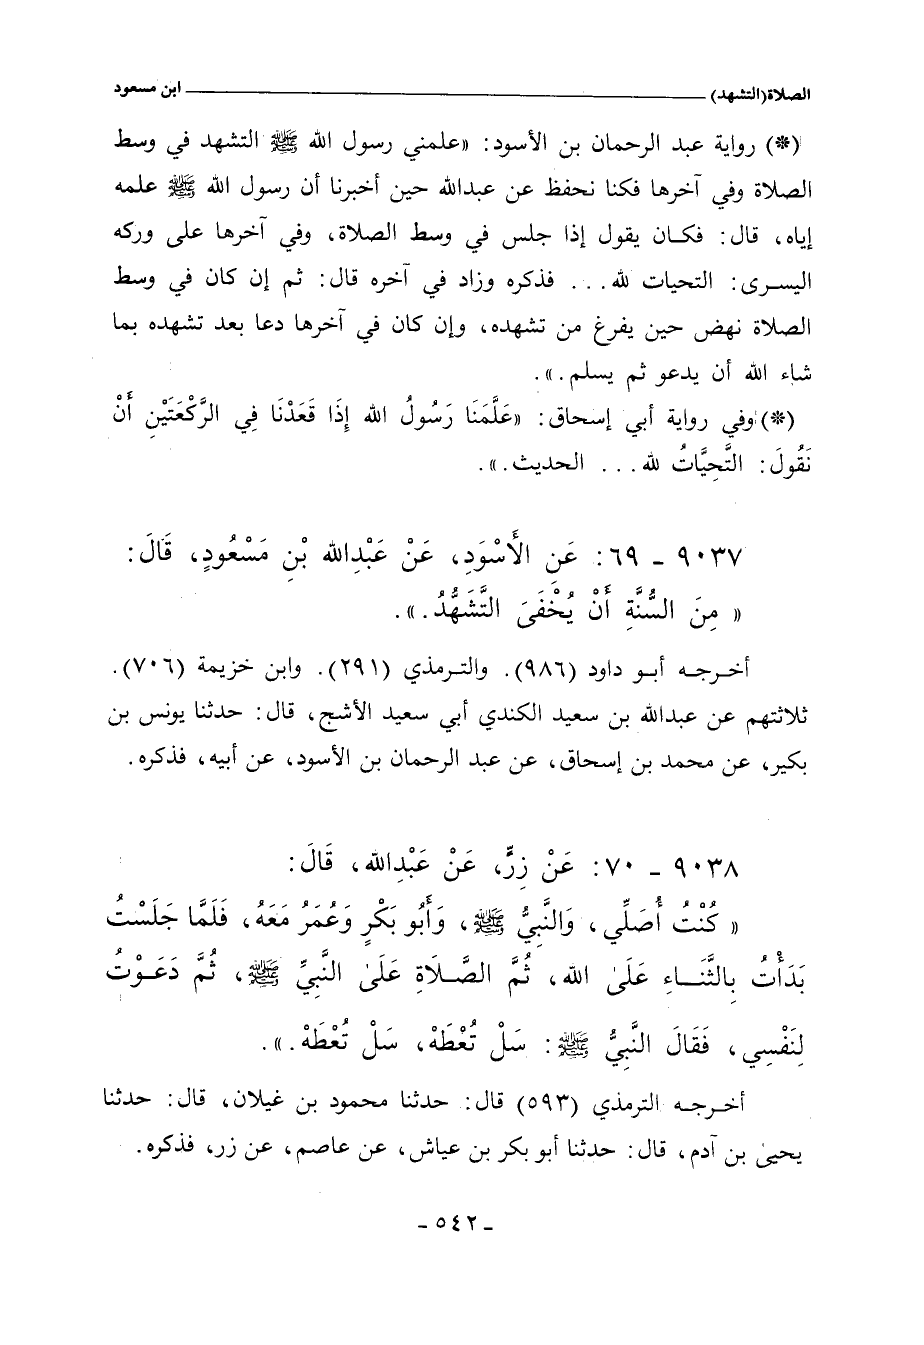 الصلاة (التشهد) ابن مسعود
(*) رواية عبد الرحمان بن الأسود: «علمني رسول الله ﷺ التشهد في وسط
الصلاة وفي آخرها فكنا نحفظ عن عبدالله حين أخبرنا أن رسول الله ﷺ علمه
إياه، قال: فكان يقول إذا جلس في وسط الصلاة، وفي آخرها على وركه
اليسرى: التحيات لله... فذكره وزاد في آخره قال: ثم إن كان في وسط
الصلاة نهض حين يفرغ من تشهده، وإن كان في آخرها دعا بعد تشهده بما
شاء الله أن يدعو ثم يسلم.».
(*) وفي رواية أبي إسحاق: «عَلَّمَنَا رَسُولُ الله إِذَا قَعَدْنَا فِي الرَّكْعَتَيْنِ أَنْ
نَقُولَ: التَّحِيَّاتُ لله... الحديث.».
٩٠٣٧ - ٦٩: عَنِ الأَسْوَدِ، عَنْ عَبْدِالله بْنِ مَسْعُودٍ، قَالَ:
« مِنَ السُّنَّةِ أَنْ يُخْفَىَ التَّشَهُّدُ.».
أخرجه أبو داود (٩٨٦). والترمذي (٢٩١). وابن خزيمة (٧٠٦).
ثلاثتهم عن عبدالله بن سعيد الكندي أبي سعيد الأشج، قال: حدثنا يونس بن
بكير، عن محمد بن إسحاق، عن عبد الرحمان بن الأسود، عن أبيه، فذكره.
٩٠٣٨ - ٧٠: عَنْ زِرٍّ، عَنْ عَبْدِالله، قَالَ:
« كُنْتُ أُصَلِّي، وَالنَّبِيُّ ﷺ، وَأَبُو بَكْرٍ وَعُمَرُ مَعَهُ، فَلَمَّا جَلَسْتُ
بَدَأْتُ بِالثَّنَاءِ عَلَىٰ الله، ثُمَّ الصَّلَاةِ عَلَىٰ النَّبِيِّ ﷺ، ثُمَّ دَعَوْتُ
لِنَفْسِي، فَقَالَ النَّبِيُّ ﷺ: سَلْ تُعْطَهْ، سَلْ تُعْطَهْ.».
أخرجه الترمذي (٥٩٣) قال: حدثنا محمود بن غيلان، قال: حدثنا
يحيىٰ بن آدم، قال: حدثنا أبو بكر بن عياش، عن عاصم، عن زر، فذكره.
- ٥٤٢ -